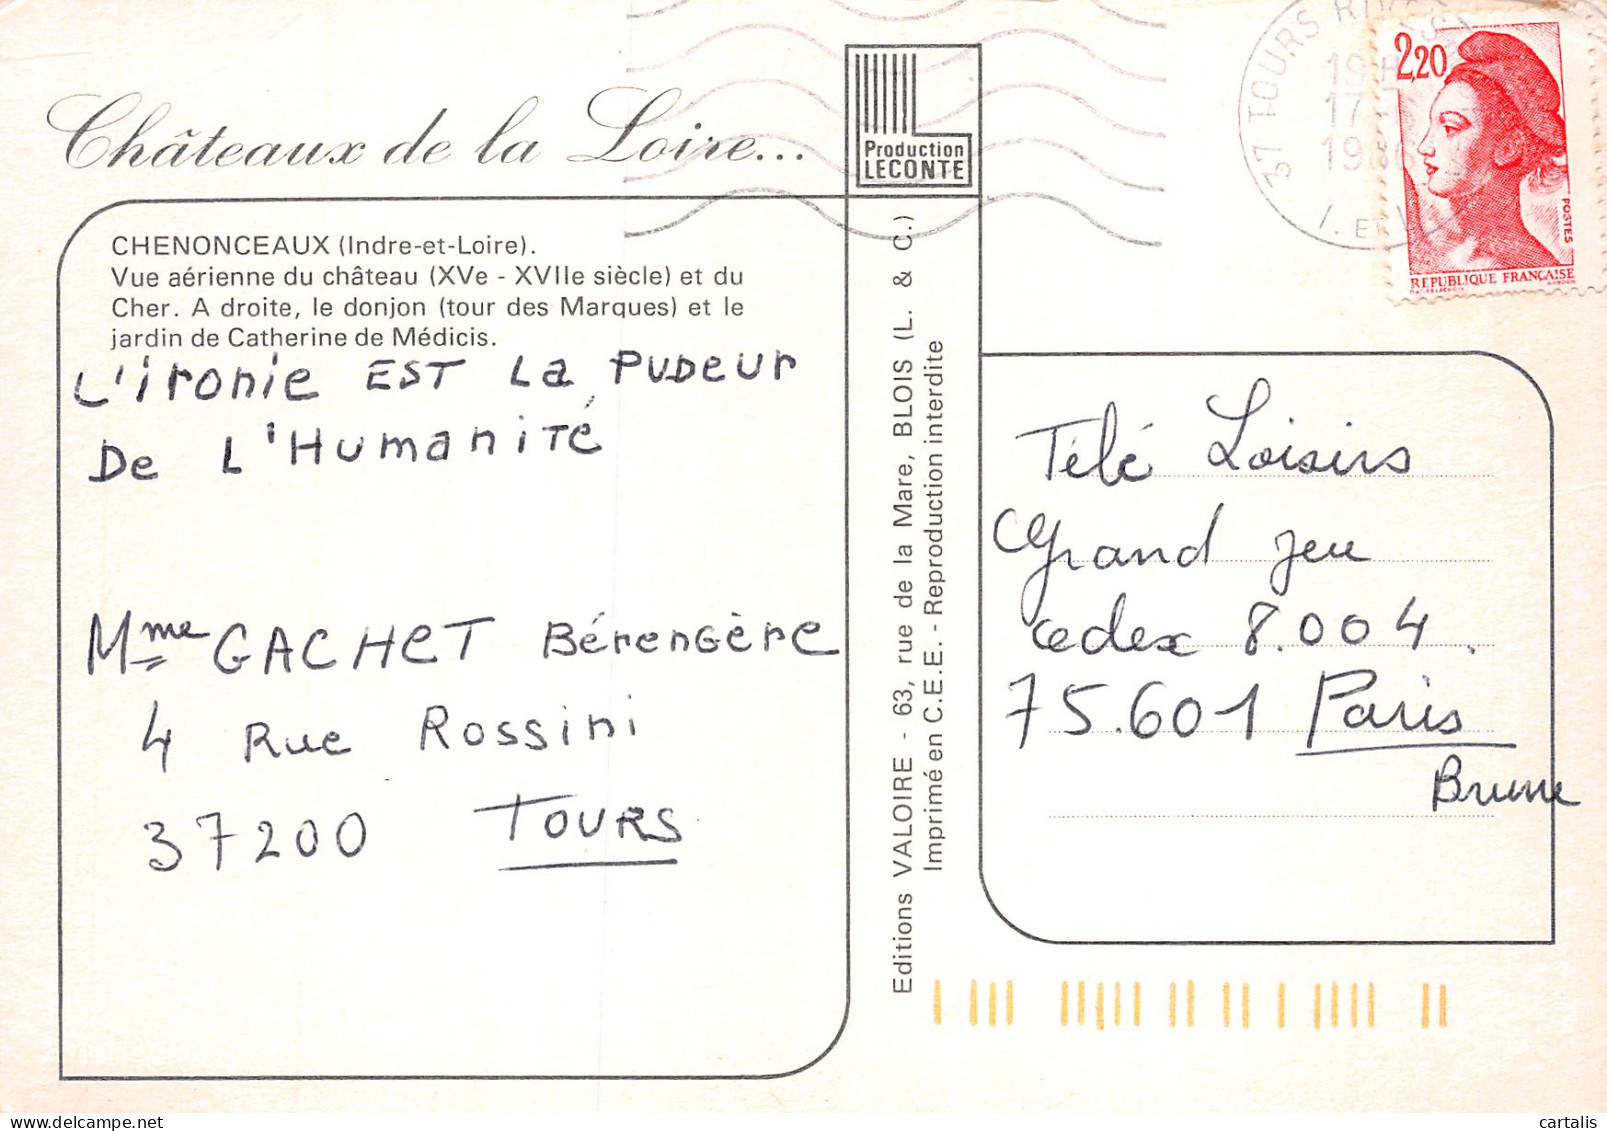 Châteaux de la Loire...
Production
LECONTE
37 TOURS RIV
19H
17
19
I. ET L
2,20
POSTES
REPUBLIQUE FRANÇAISE
CHENONCEAUX (Indre-et-Loire).
Vue aérienne du château (XVe - XVIIe siècle) et du
Cher. A droite, le donjon (tour des Marques) et le
jardin de Catherine de Médicis.
L'ironie EST La PUDeur
De L'Humanité
Mme GACHeT Bérengère
4 Rue Rossini
37200 TOURS
Editions VALOIRE - 63, rue de la Mare, BLOIS (L. & C.)
Imprimé en C.E.E. - Reproduction interdite
Télé Loisirs
Grand jeu
cedex 8.004.
75.601 Paris
Brune
cartalis